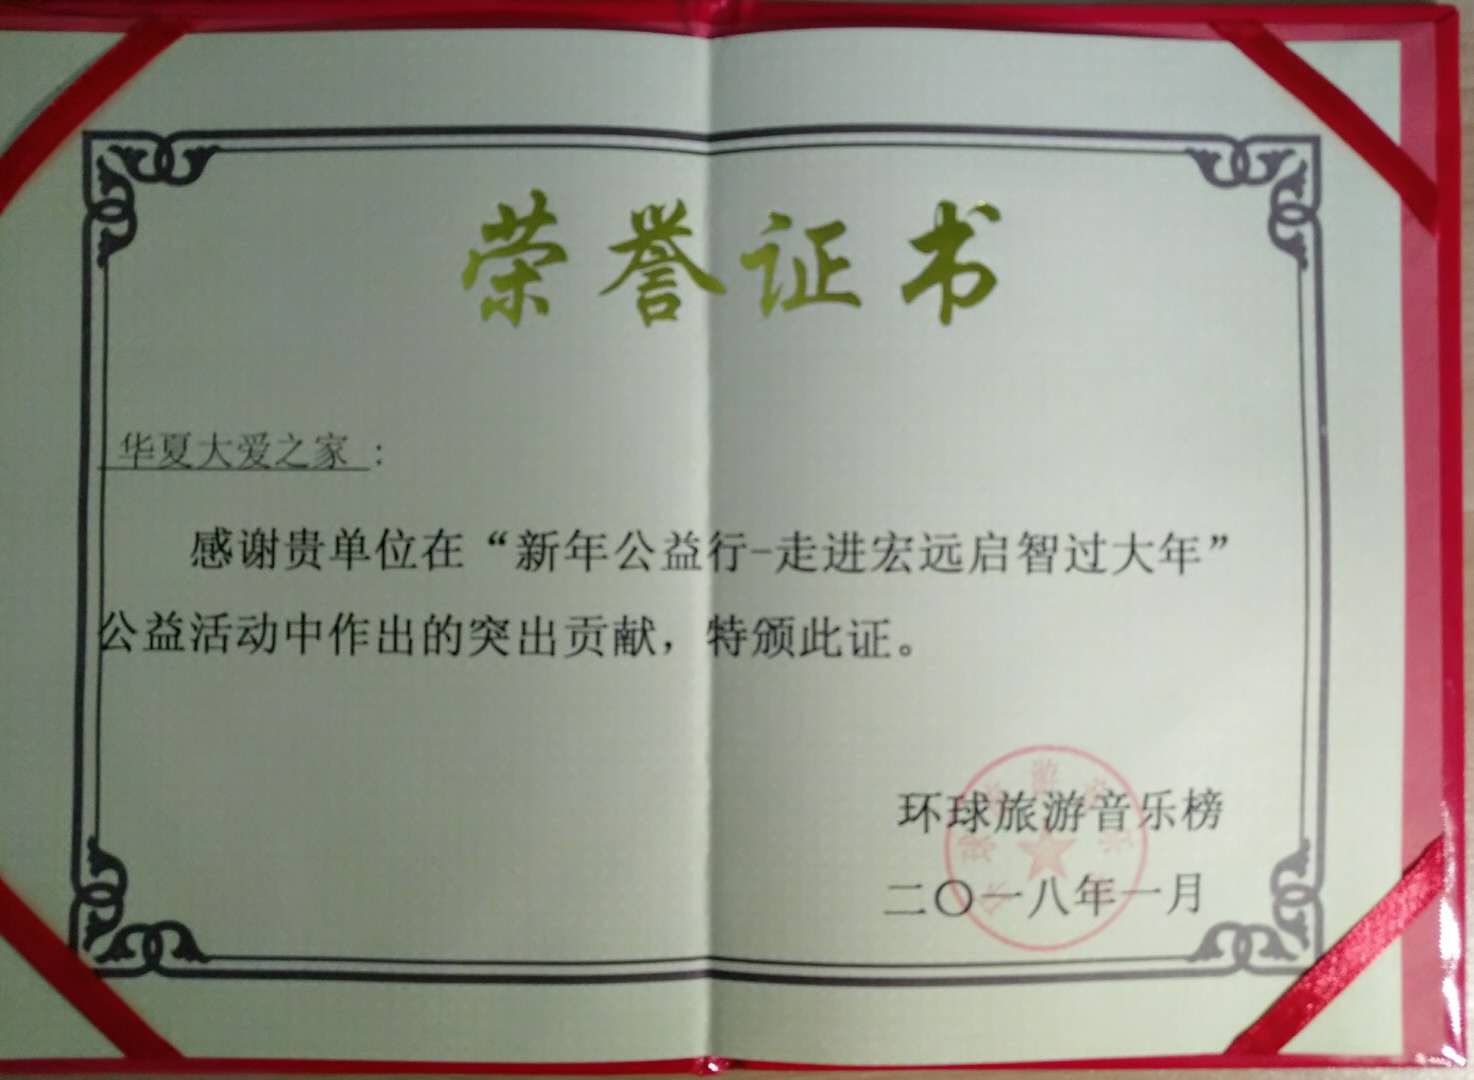 荣誉证书
华夏大爱之家：
感谢贵单位在“新年公益行-走进宏远启智过大年”
公益活动中作出的突出贡献，特颁此证。
环球旅游音乐榜
二〇一八年一月